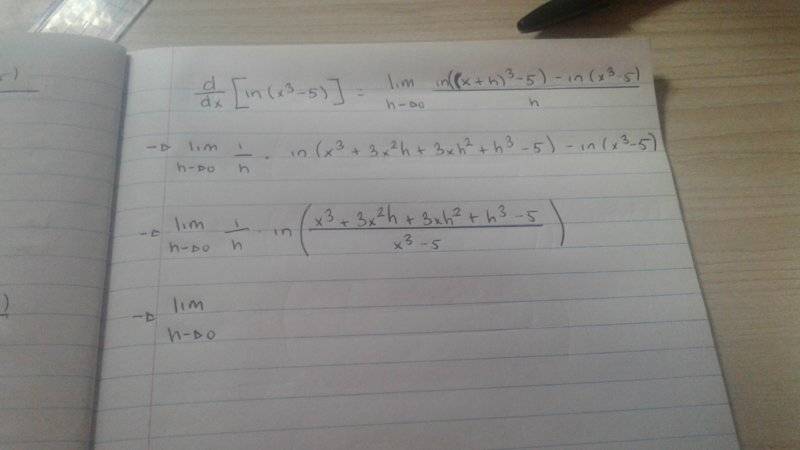 d/dx [ln(x³-5)] = lim h→0 ln((x+h)³-5) - ln(x³-5) / h
→ lim h→0 1/h · ln(x³ + 3x²h + 3xh² + h³ - 5) - ln(x³-5)
→ lim h→0 1/h · ln(x³ + 3x²h + 3xh² + h³ - 5 / x³-5)
→ lim h→0